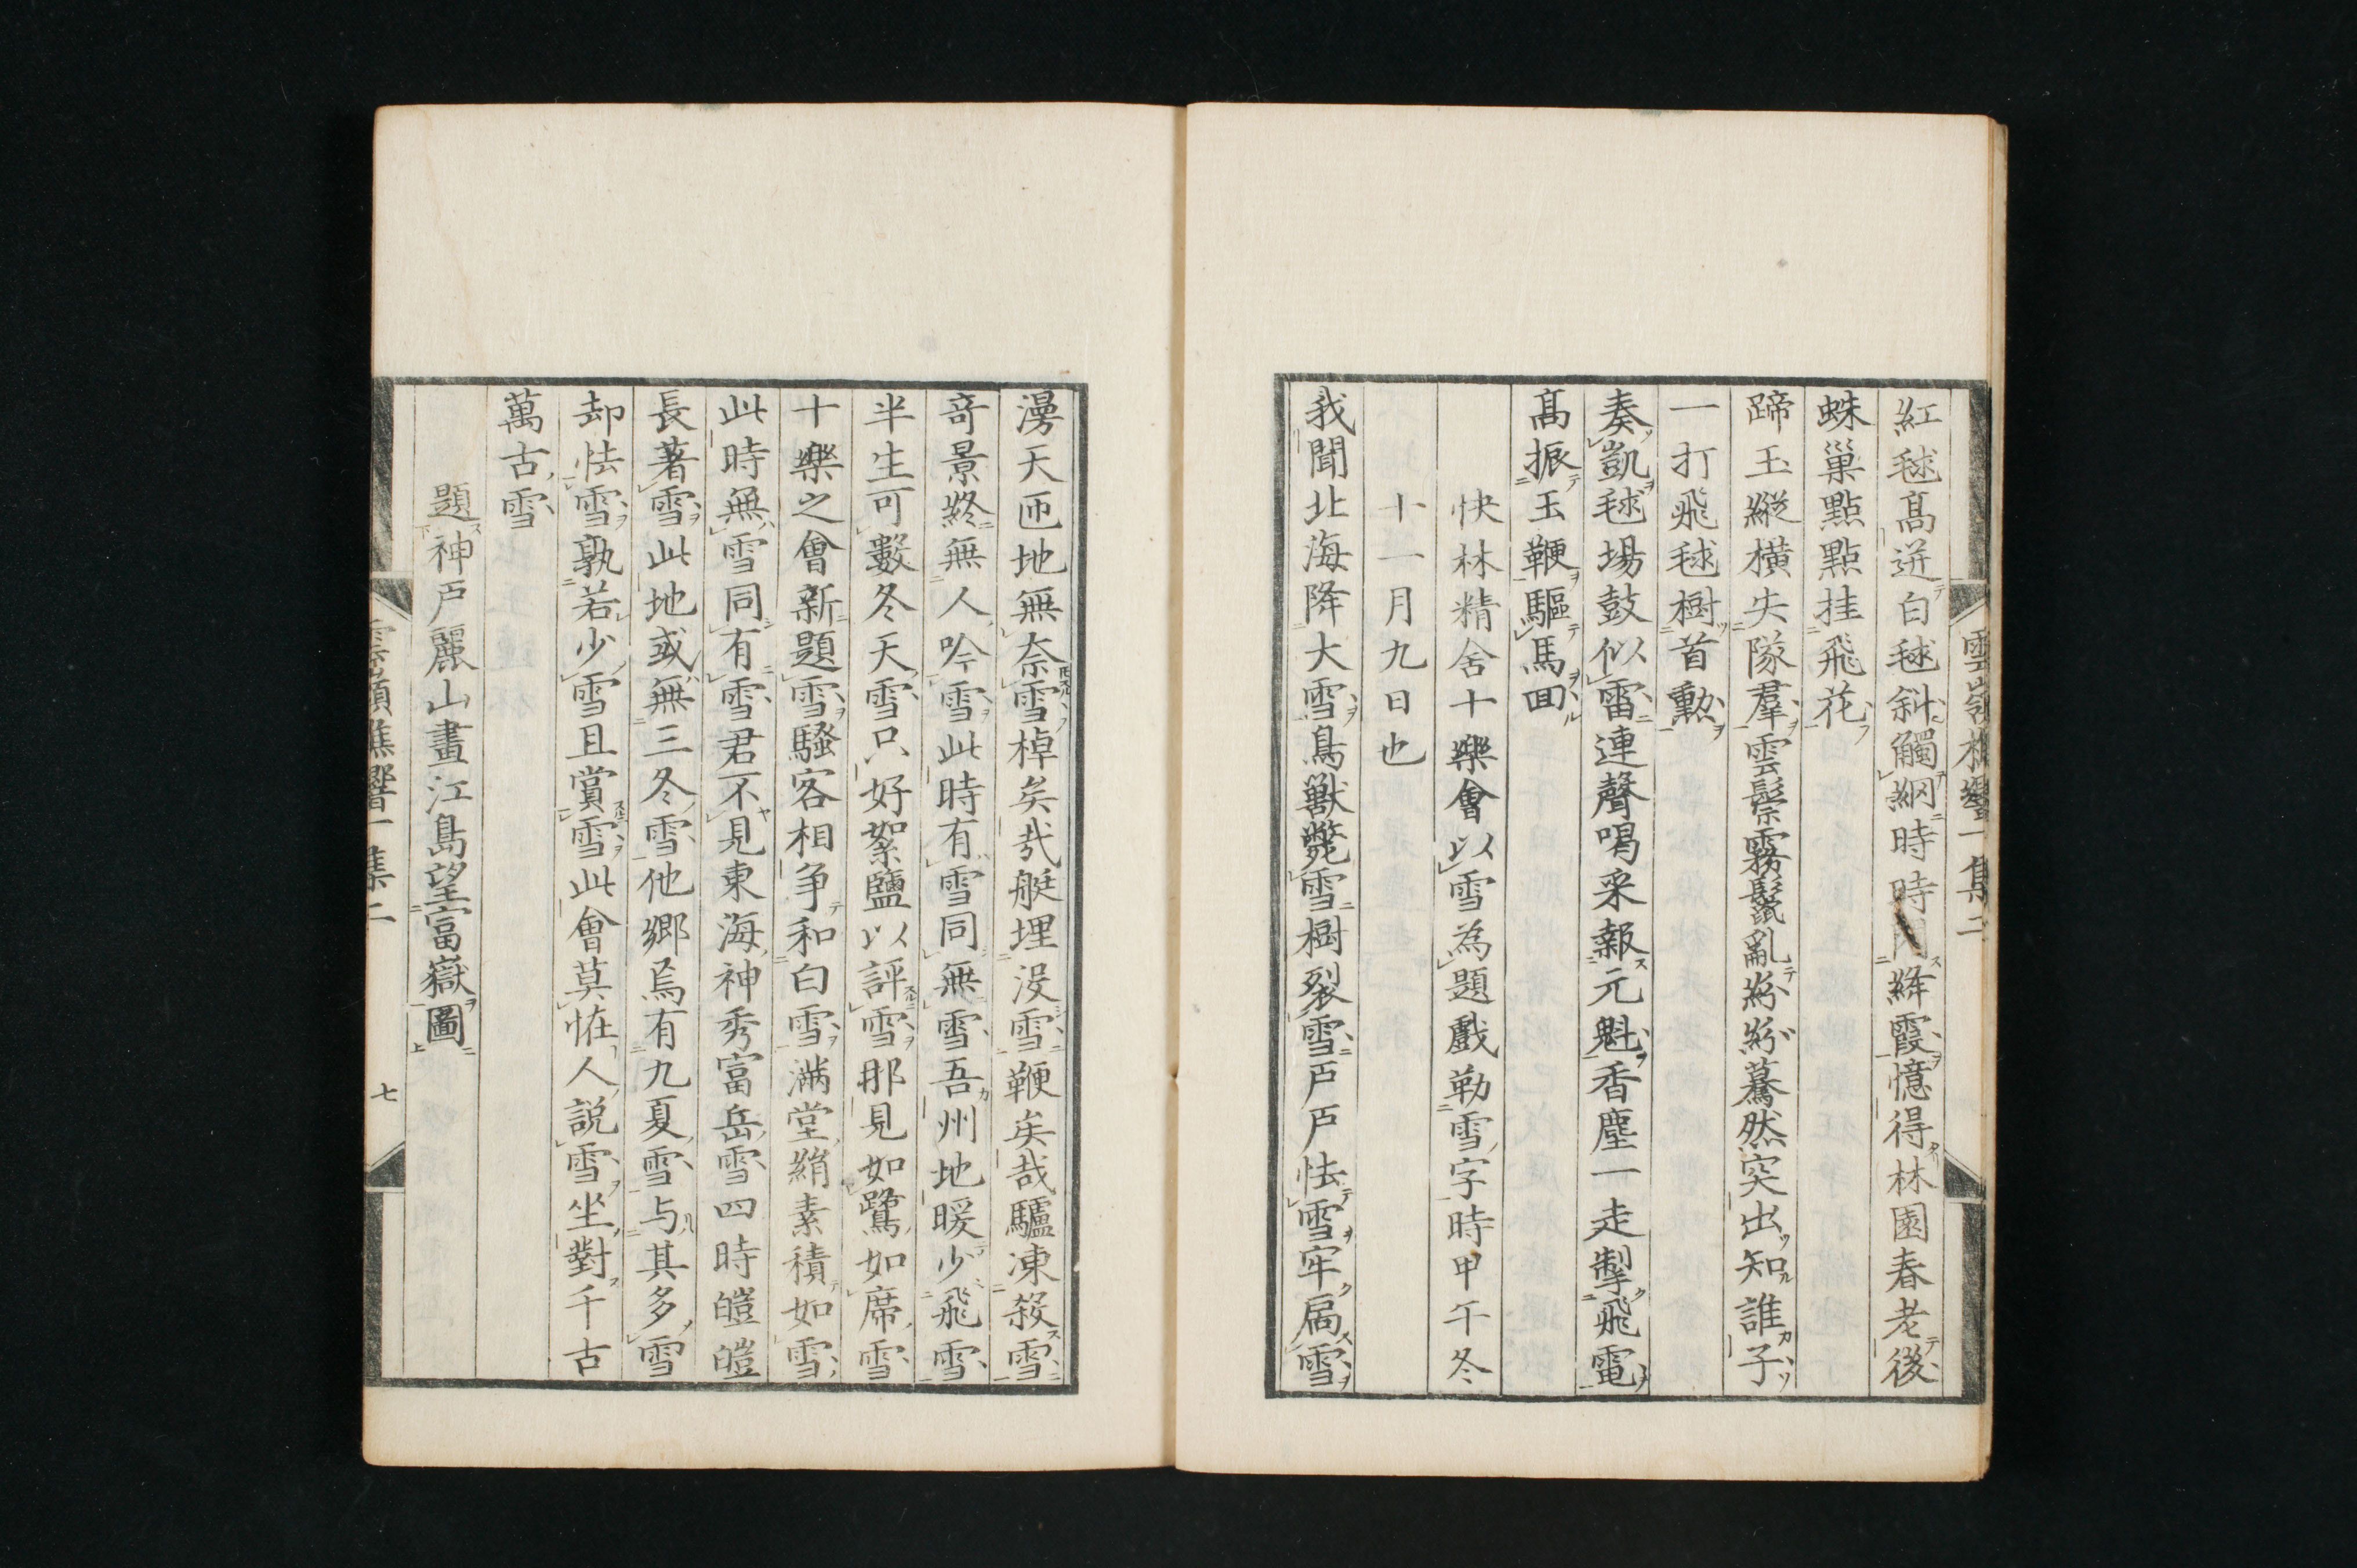 紅毬髙迸白毬斜觸網時時閃絳霞憶得林園春老後
蛛巢點點挂飛花
蹄玉縱橫失隊羣雲鬃霧鬣亂紛紛驀然突出知誰子
一打飛毬樹首勳
奏凱毬場鼓似雷連聲喝采報元魁香塵一走掣飛電
髙振玉鞭驅馬回
快林精舍十樂會以雪為題戲勒雪字時甲午冬
十一月九日也
我聞北海降大雪鳥獸斃雪樹裂雪戸戸怯雪牢扃雪
雲嶺樵響一集二
漫天匝地無奈雪棹矣哉艇埋沒雪鞭矣哉驢凍殺雪
奇景終無人吟雪此時有雪同無雪吾州地暖少飛雪
半生可數冬天雪只好絮鹽以評雪那見如鷺如席雪
十樂之會新題雪騷客相争和白雪滿堂絹素積如雪
此時無雪同有雪君不見東海神秀富岳雪四時皚皚
長著雪此地或無三冬雪他鄉焉有九夏雪与其多雪
却怯雪孰若少雪且賞雪此會莫恠人說雪坐對千古
萬古雪
題神戸麗山畫江島望富嶽圖
雲嶺樵響一集二
七